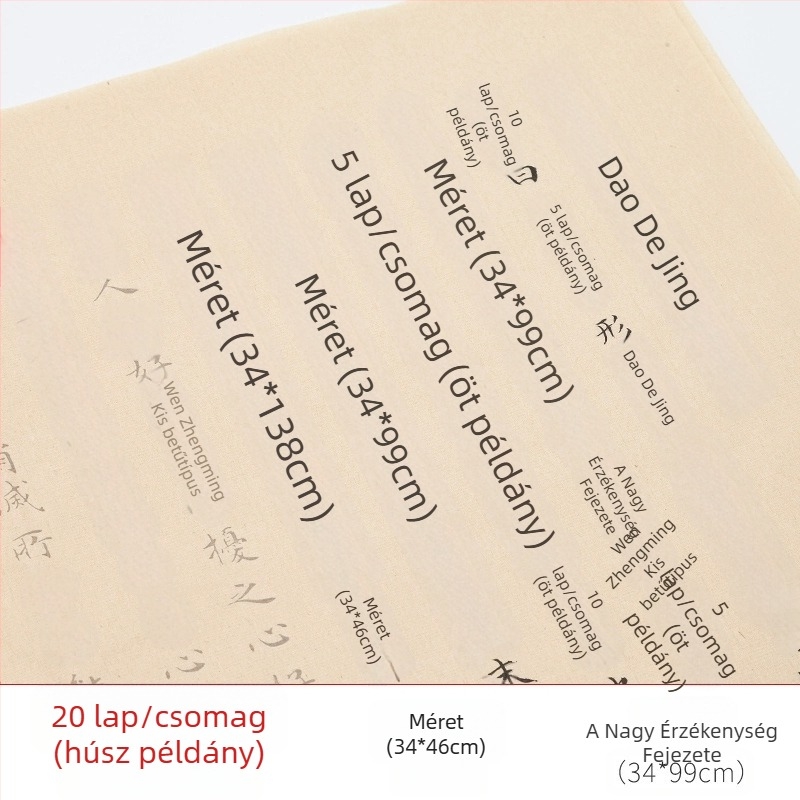 Dao De Jing
10
lap/csomag
(öt
példány)
Méret (34*99cm)
5 lap/csomag
(öt példány)
形
Dao De Jing
5 lap/csomag (öt példány)
Méret (34*99cm)
Méret (34*138cm)
人
好
Wen Zhengming
Kis betűtípus
A Nagy
Érzékenység
Fejezete
Wen
Zhengming
Kis
betűtípus
5
lap/csomag
(öt
példány)
10
lap/csomag
(öt példány)
Méret
(34*46cm)
擾
之
心
心
威
所
20 lap/csomag
(húsz példány)
Méret
(34*46cm)
A Nagy Érzékenység
Fejezete
(34*99cm)